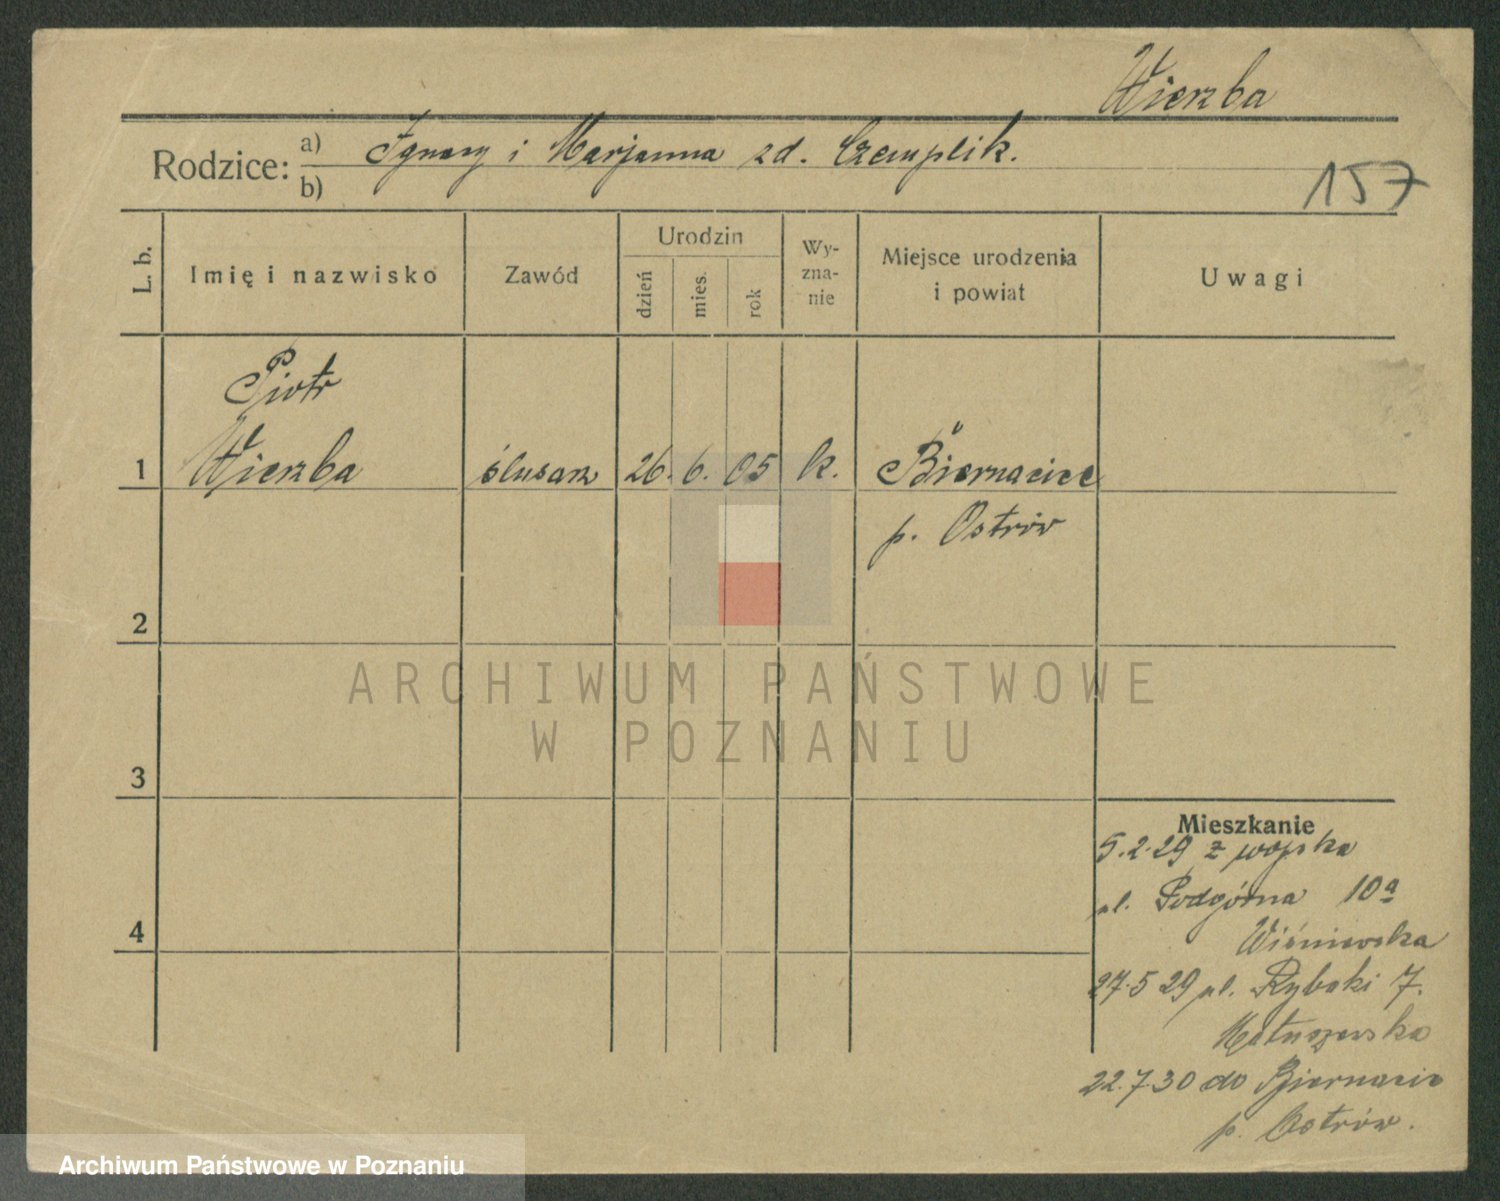 Wierzba
Rodzice: a) Ignacy i Marjanna zd. Czemplik.
b)
157
L. b.
Imię i nazwisko
Zawód
Urodzin
dzień
mies.
rok
Wy-
zna-
nie
Miejsce urodzenia
i powiat
Uwagi
Piotr
1 Wierzba ślusarz 26. 6. 05 k. Biernacice
p. Ostrów
2
3
4
Mieszkanie
5.2.29 z wojska
ul. Podgórna 10a
Wiśniewska
27.5 29 ul. Rybaki 7.
Matuszewska
22.7.30 do Biernacic
p. Ostrów.
ARCHIWUM PAŃSTWOWE
W POZNANIU
Archiwum Państwowe w Poznaniu